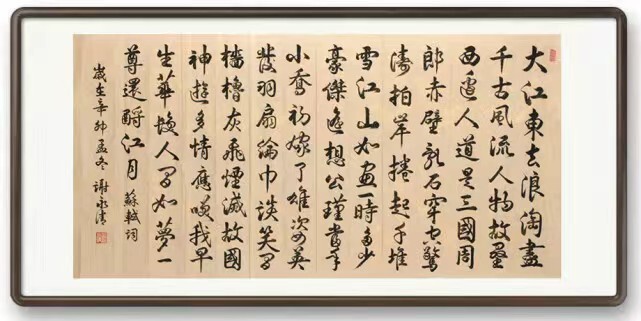 大江東去浪淘盡
千古風流人物故壘
西邊人道是三國周
郎赤壁亂石穿空驚
濤拍岸捲起千堆
雪江山如畫一時多少
豪傑遙想公瑾當年
小喬初嫁了雄姿英
發羽扇綸巾談笑間
檣櫓灰飛煙滅故國
神遊多情應咲我早
生華髮人間如夢一
尊還酹江月 蘇軾詞
歲在辛卯孟冬 謝永清